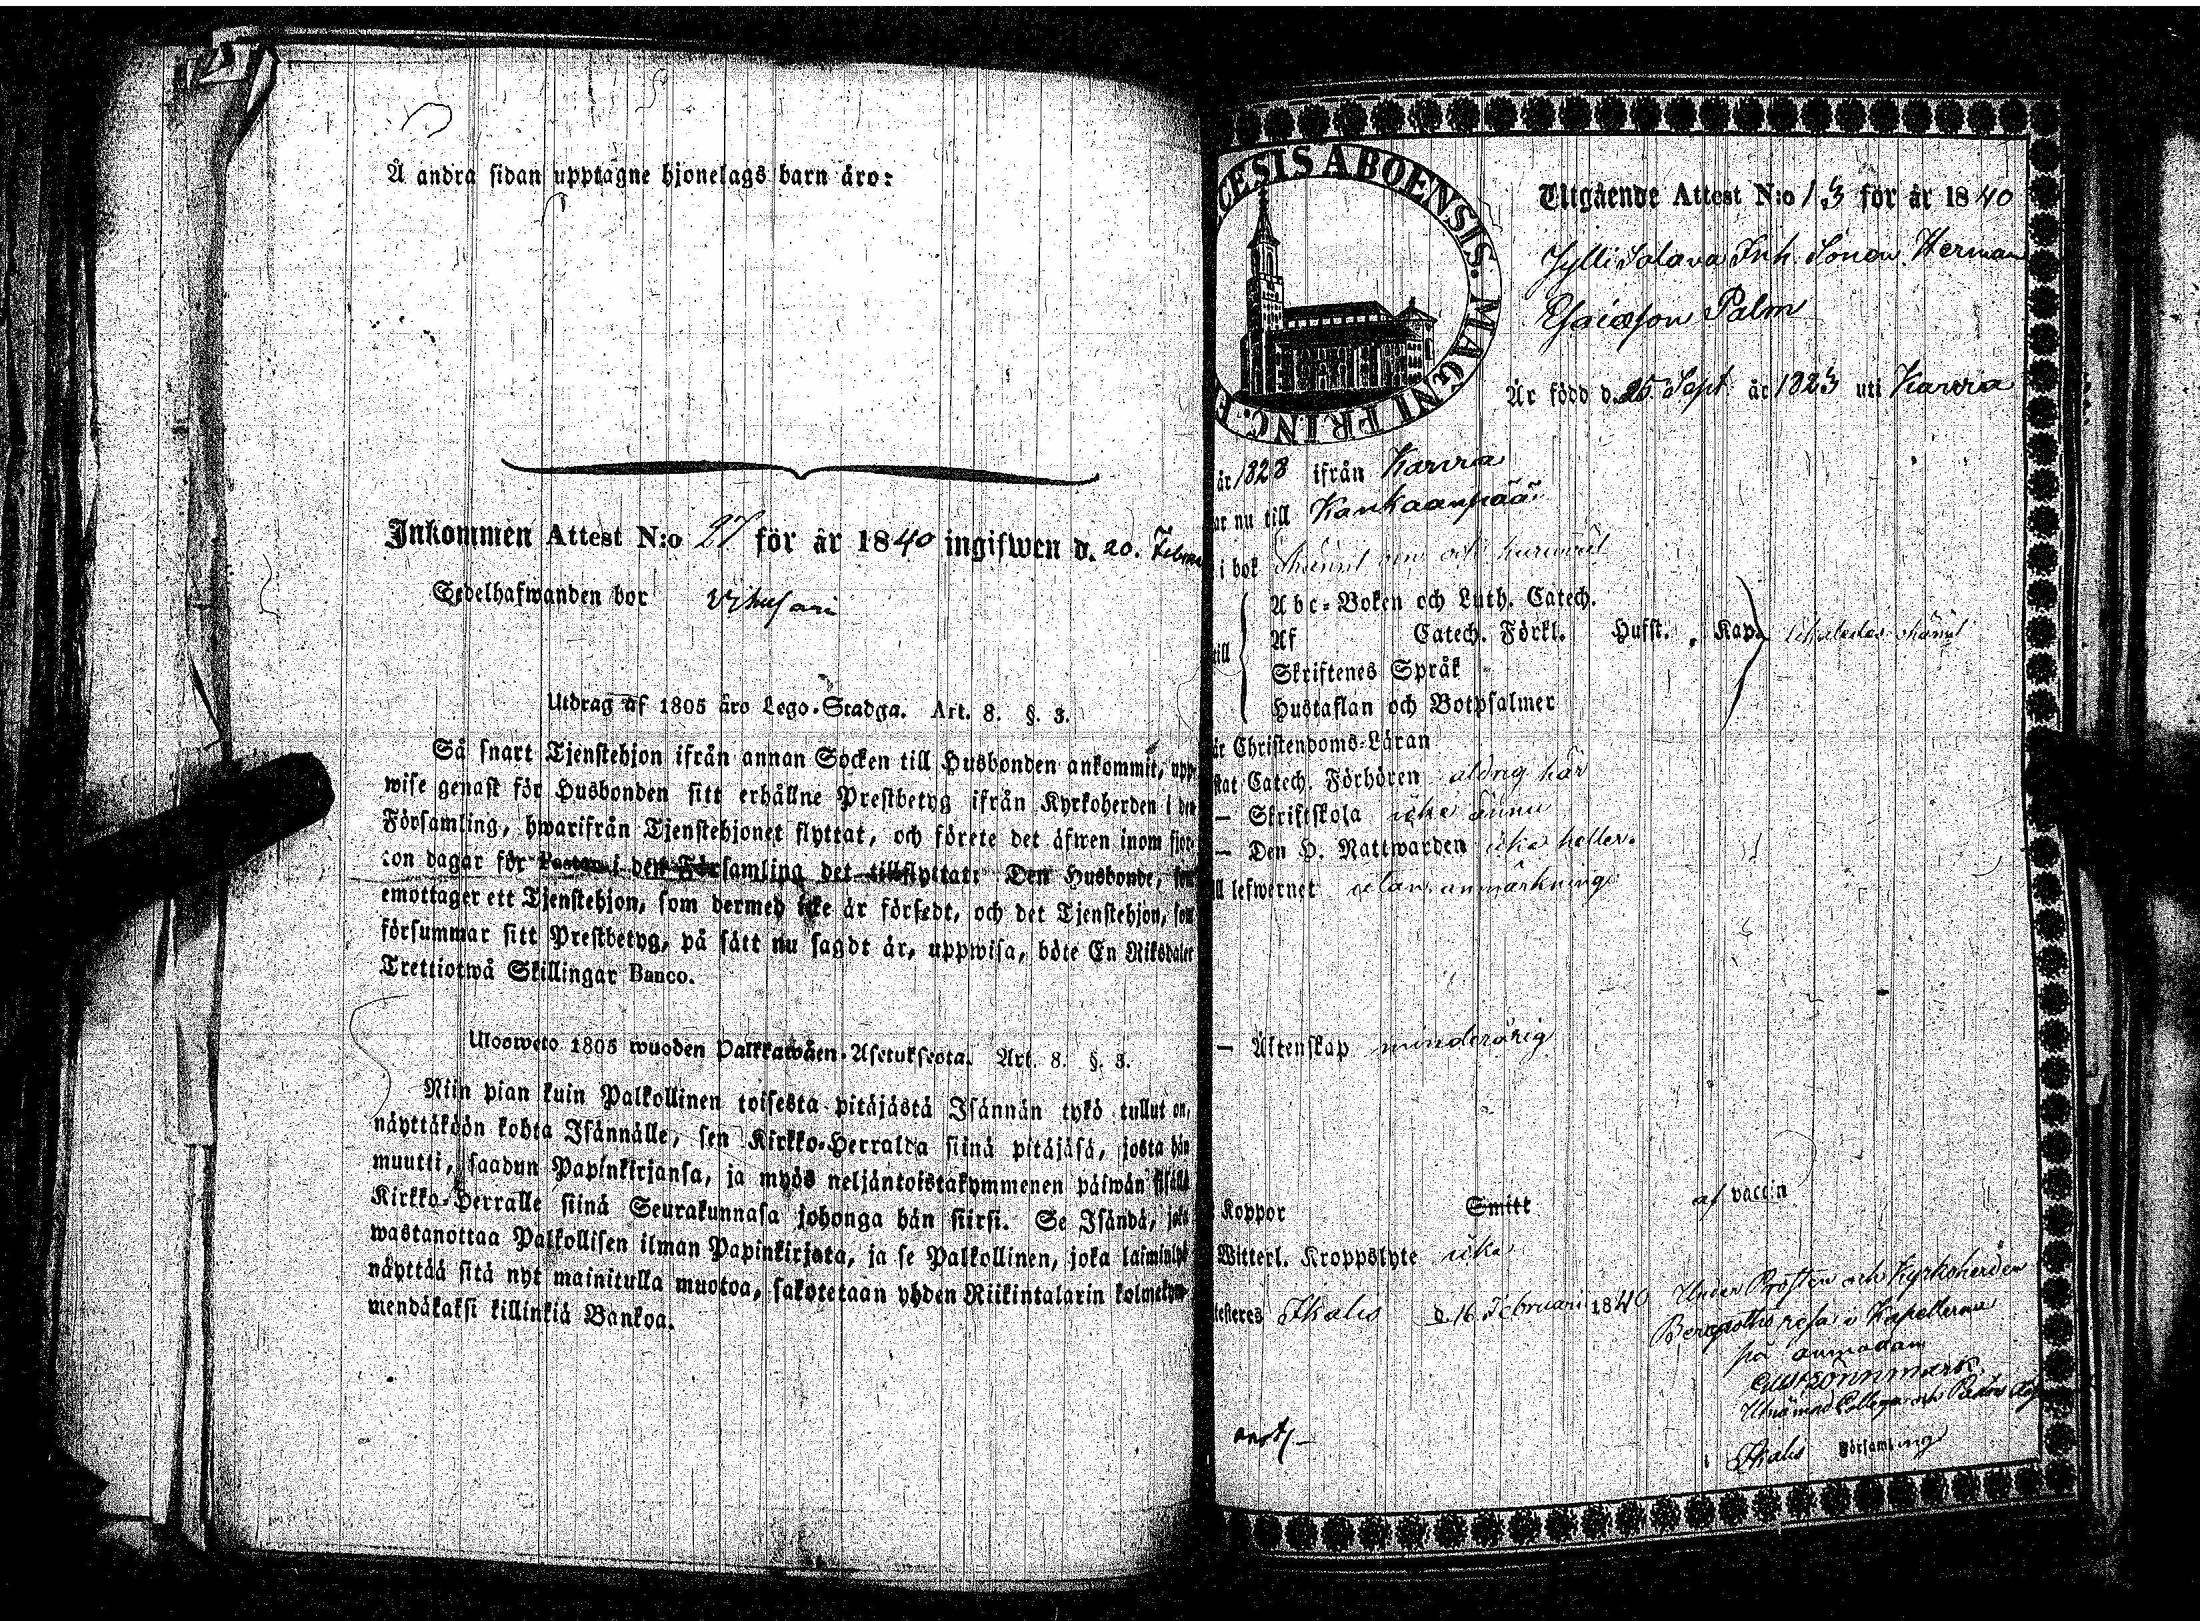 Å andra sidan upptagne hjonelags barn äro:
Inkommen Attest N:o 27 för år 1840 ingifwen d. 20. Febru
Sedelhafwanden bor
Utdrag af 1805 års Lego-Stadga. Art. 8. §. 3.
Så snart Tjenstehjon ifrån annan Socken till Husbonden ankommit, upp-
wise genast för Husbonden sitt erhållne Prestbetyg ifrån Kyrkoherden i den
Församling, hwarifrån Tjenstehjonet flyttat, och förete det äfwen inom fjor-
ton dagar för Pastor i den Församling det tillflyttat: Den Husbonde, som
emottager ett Tjenstehjon, som dermed icke är försedt, och det Tjenstehjon, som
försummar sitt Prestbetyg, på sätt nu sagdt är, uppwisa, böte En Riksdaler
Trettiotwå Skillingar Banco.
Ulosweto 1805 wuoden Palkkawäen-Asetuksesta. Art. 8. §. 3.
Niin pian kuin Palkollinen toisesta pitäjästä Isännän tykö tullut on,
näyttäköön kohta Isännälle, sen Kirkko-Herralta siinä pitäjäsä, josta hän
muutti, saadun Papinkirjansa, ja myös neljäntoistakymmenen päiwän sisällä
Kirkko-Herralle siinä Seurakunnasa johonga hän siirsi. Se Isändä, joka
wastanottaa Palkollisen ilman Papinkirjata, ja se Palkollinen, joka laiminlyö
näyttää sitä nyt mainitulla muotoa, sakotetaan yhden Riikintalarin kolmekym-
mendäkaksi killinkiä Bankoa.
CESIS ABOENSIS. MAGNI PRINC. F
Utgående Attest N:o 13 för år 1840
Inh. Sonen Herman
Esaiasson Palm
Är född d. 25. Sept. år 1823 uti Karvia
år 1828 ifrån Karvia
ar nu till Kankaanpää
i bok
till
Abc-Boken och Luth. Catech.
Af Catech. Förkl. Hufst. Kap.
Skriftenes Språk
Hustaflan och Botpsalmer
är Christendoms-Läran
stat Catech. Förhören aldrig här
— Skriftskola icke ännu
— Den H. Nattwarden icke heller.
ll lefwernet utan anmärkning
— Äktenskap minderårig
Koppor Smitt af vaccin
Witterl. Kroppslyte icke
testeres Ikalis d. 16 Februari 1840
Under Prosten och Kyrkoherden
resa i Kapellerne
på anmodan
i Ikalis Församling